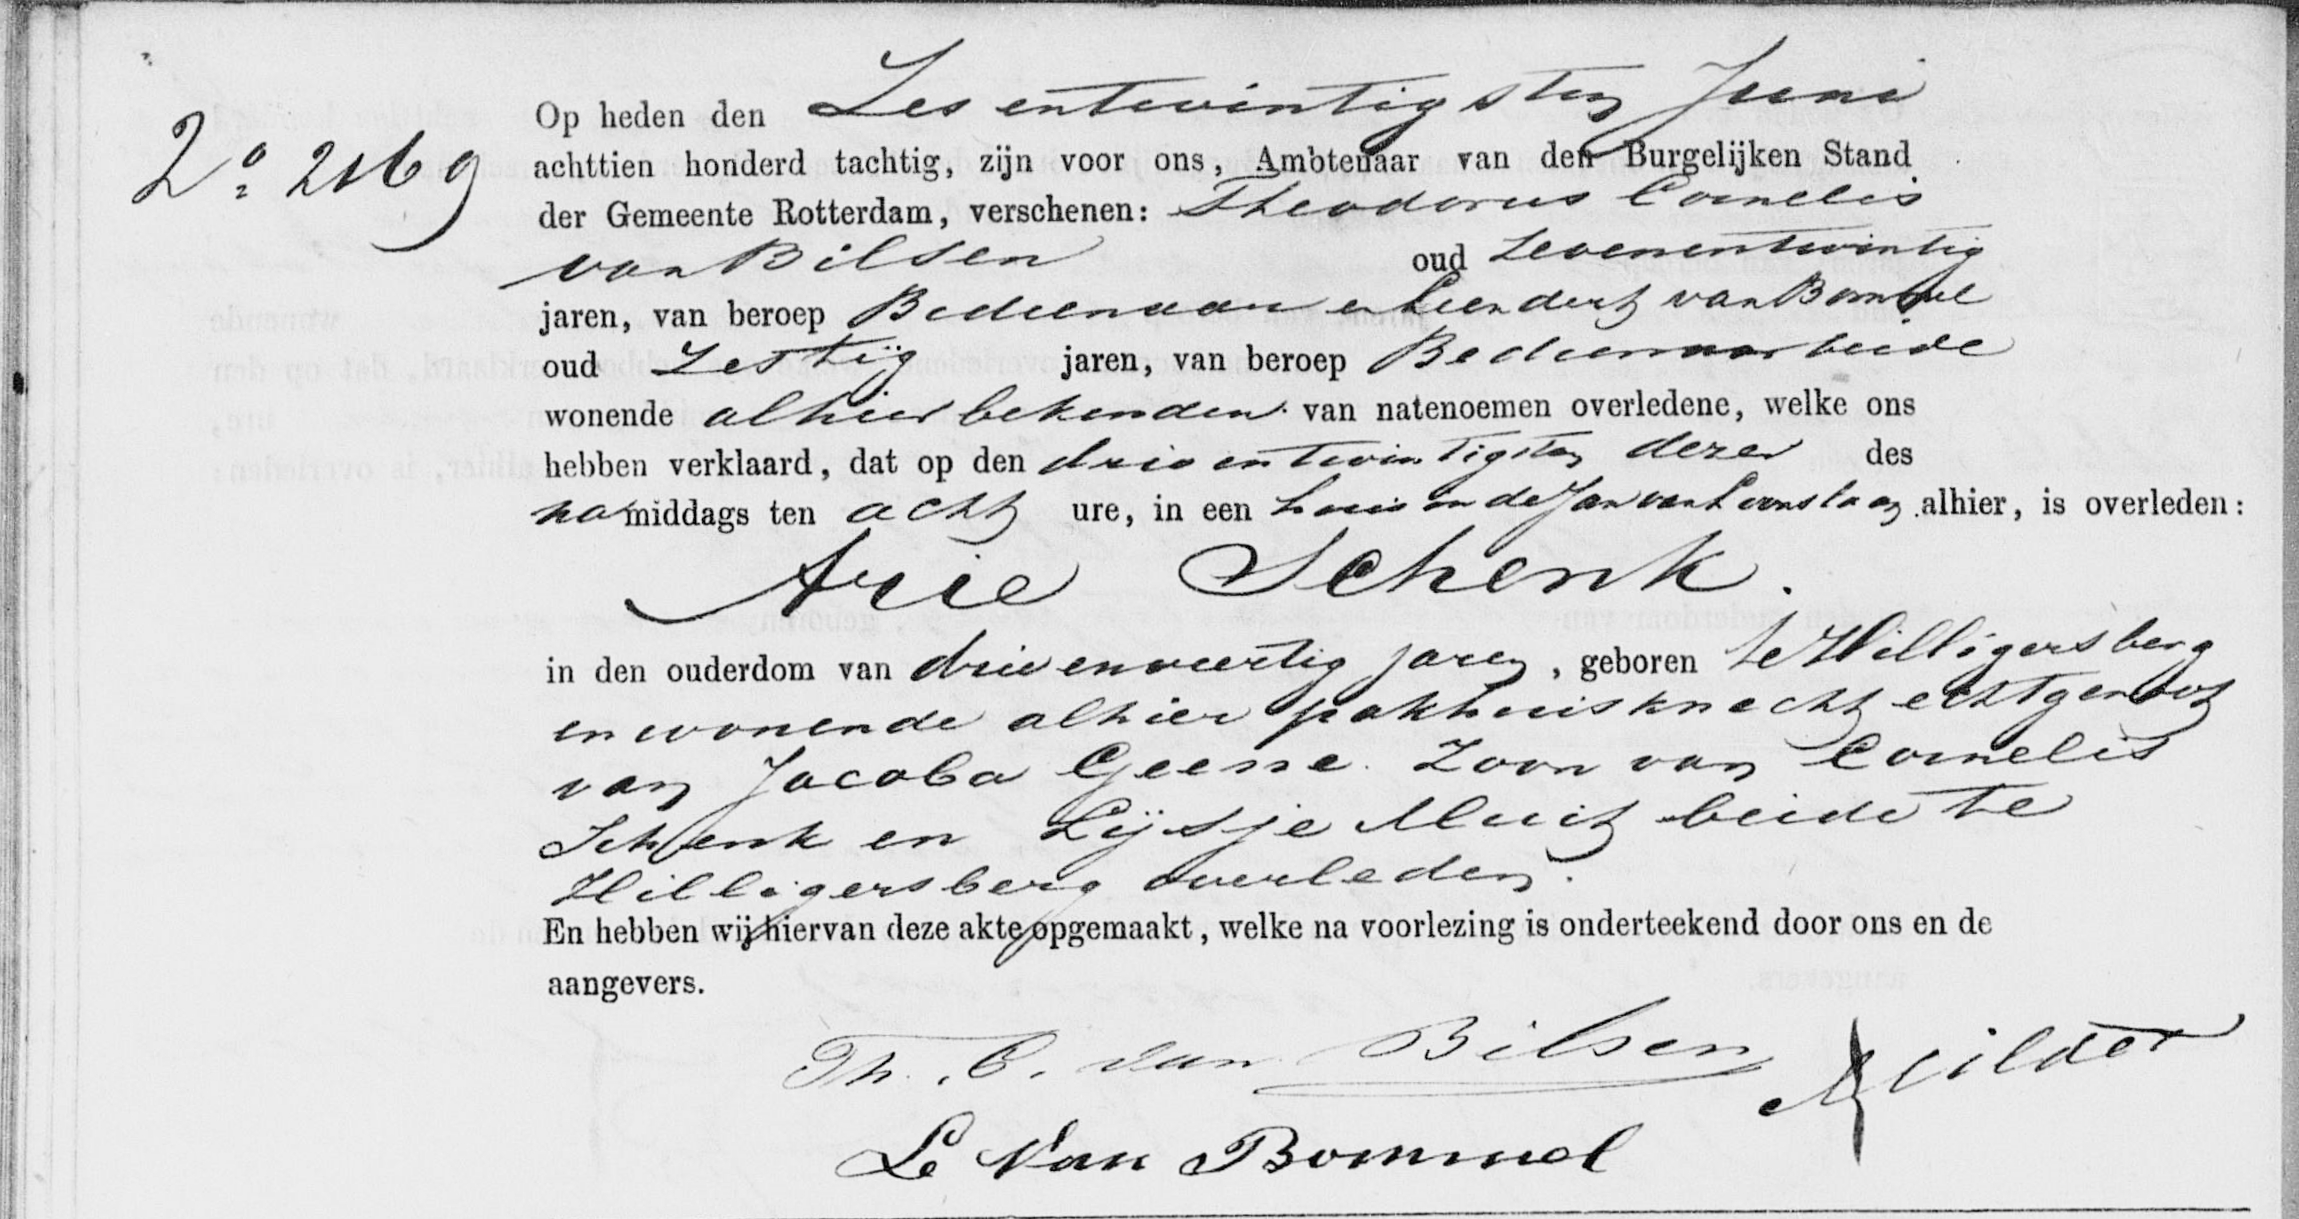 No 2169
Op heden den Zesentwintigsten Juni
achttien honderd tachtig, zijn voor ons, Ambtenaar van den Burgelijken Stand
der Gemeente Rotterdam, verschenen: Theodorus Cornelis
van Bilsen oud zevenentwintig
jaren, van beroep Bedienaar en Leendert van Bommel
oud zestig jaren, van beroep Bedienaar beide
wonende alhier bekenden van natenoemen overledene, welke ons
hebben verklaard, dat op den drieentwintigsten dezer des
namiddags ten acht ure, in een huis in de Jan van Loonslaan alhier, is overleden:
Arie Schenk.
in den ouderdom van drieenveertig jaren, geboren te Hilligersberg
en wonende alhier pakhuisknecht echtgenoot
van Jacoba Geense. Zoon van Cornelis
Schenk en Lijsje Muit beide te
Hilligersberg overleden.
En hebben wij hiervan deze akte opgemaakt, welke na voorlezing is onderteekend door ons en de
aangevers.
Th. C. van Bilsen
L Van Bommel